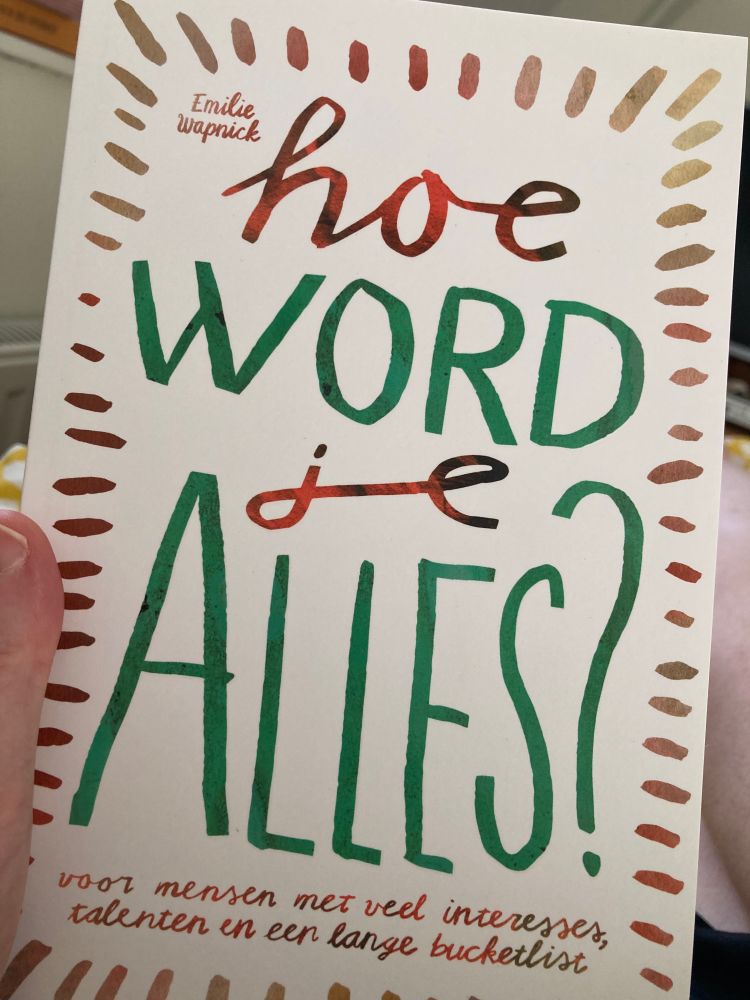 Emilie
Wapnick
hoe
WORD
je
ALLES?
voor mensen met veel interesses,
talenten en een lange bucketlist